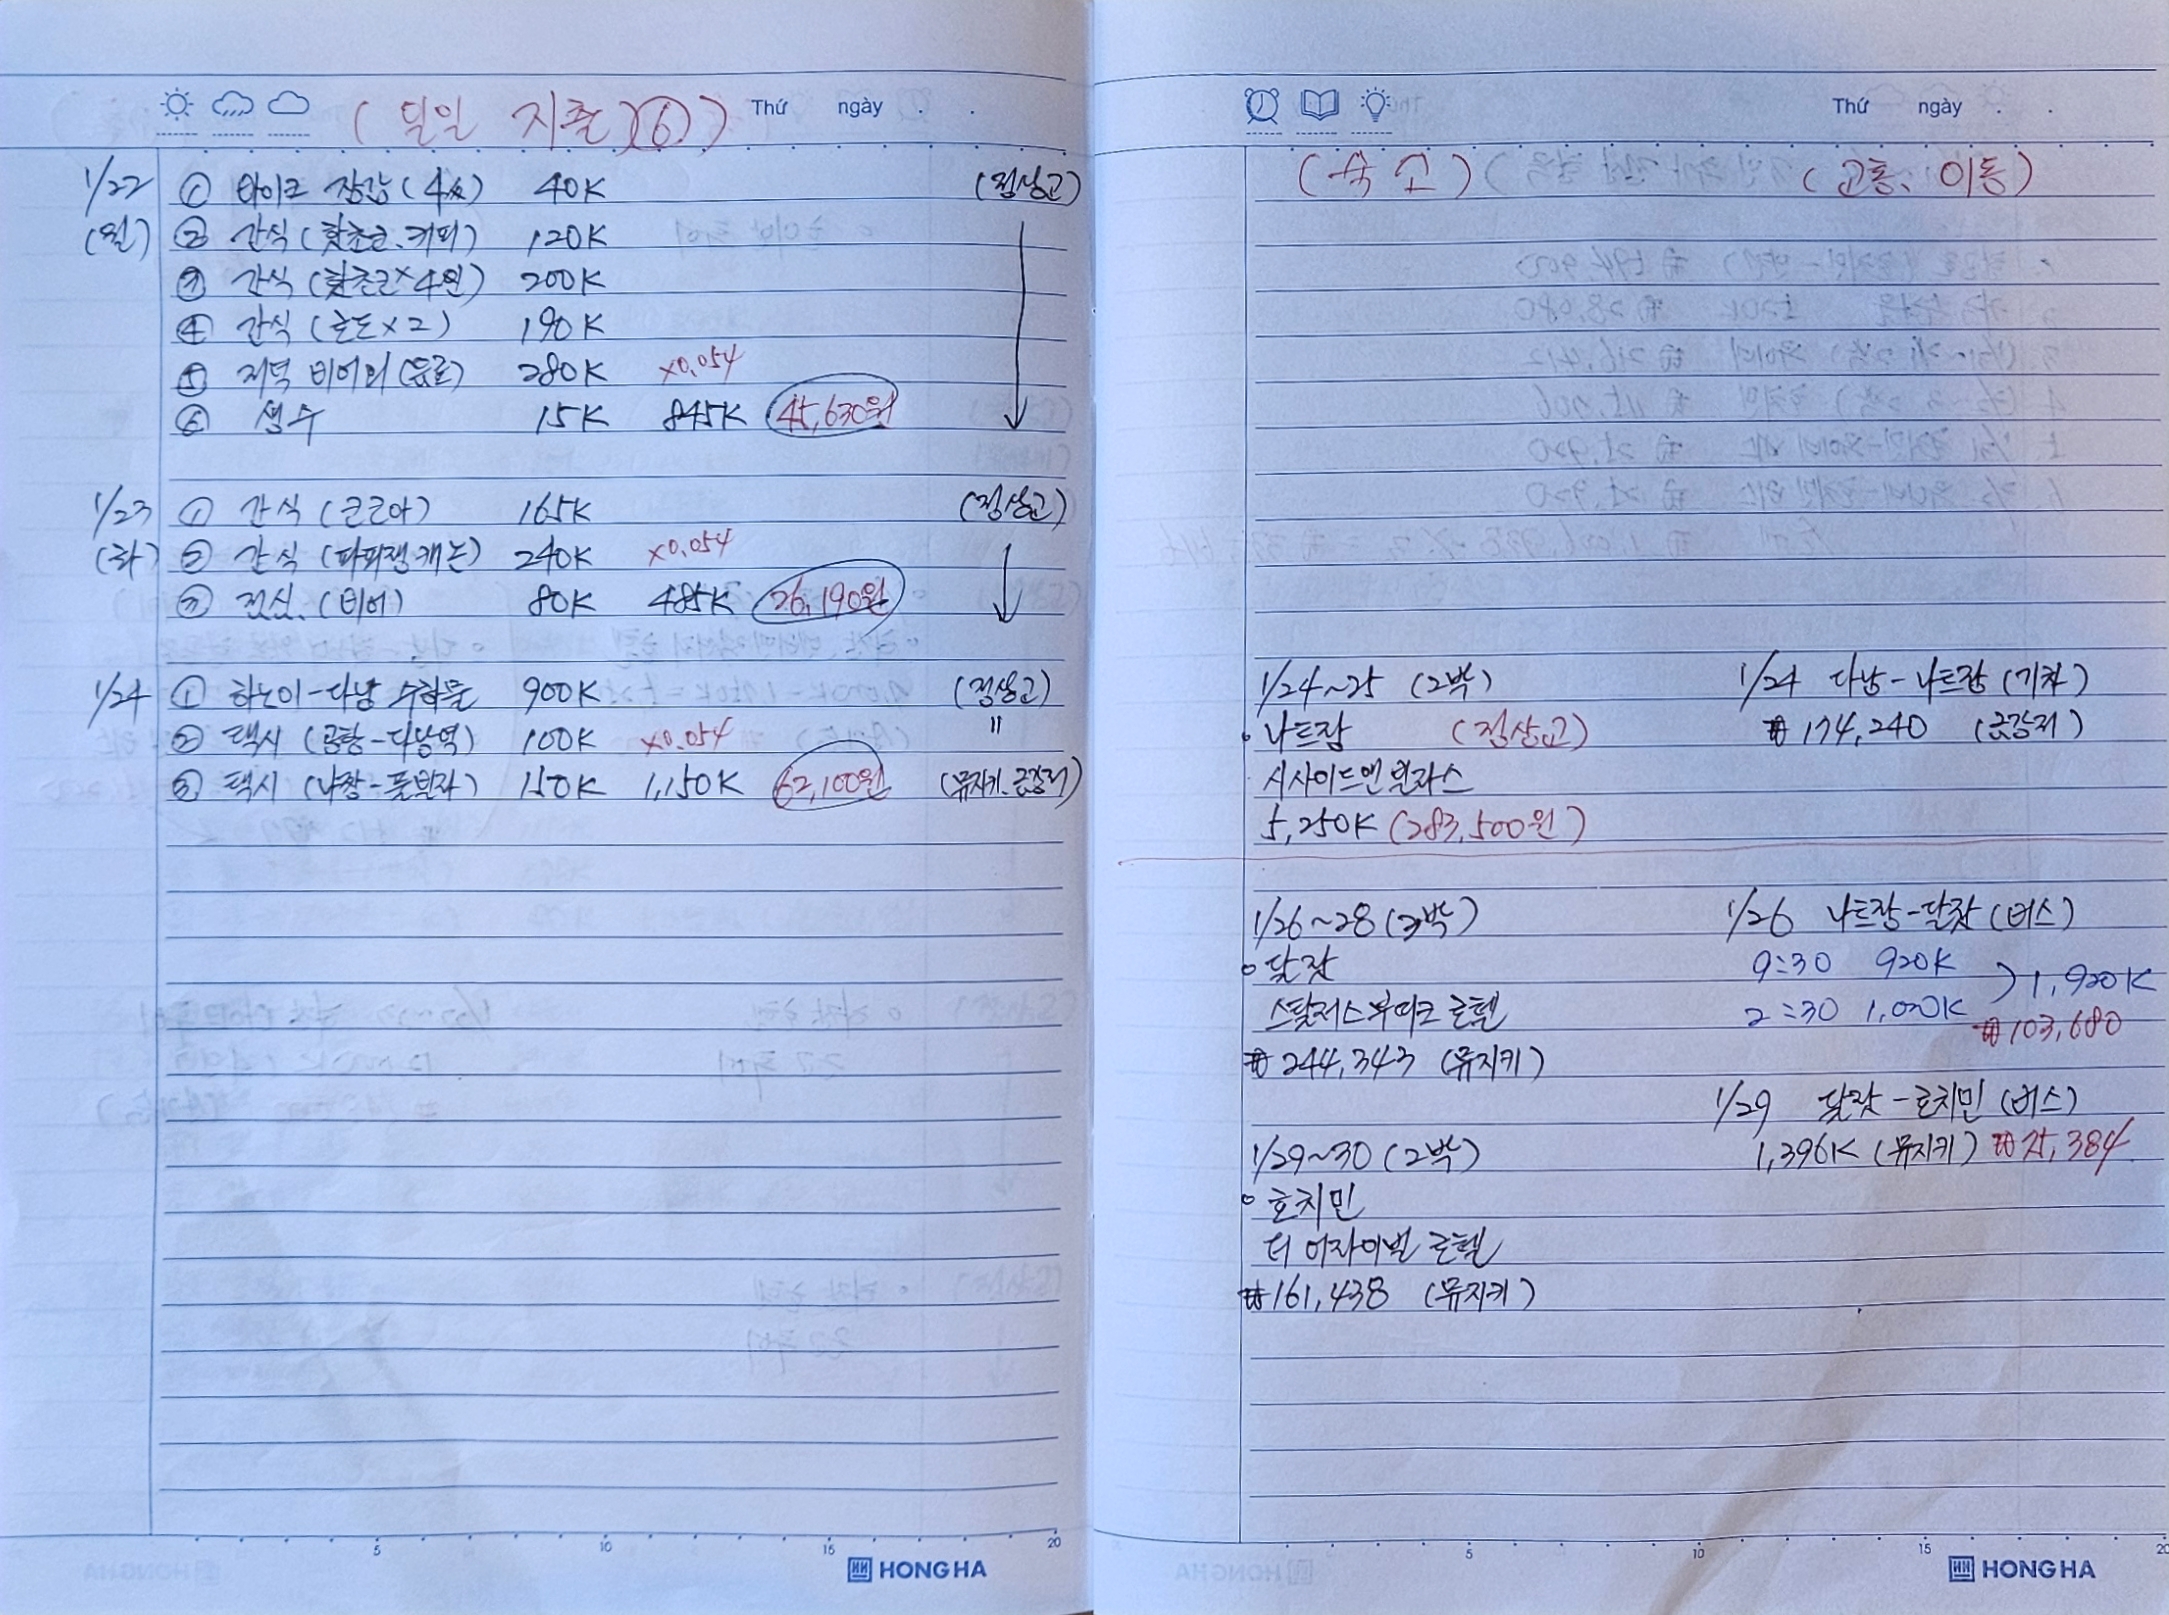 (일일 지출) ⑥ Thứ ngày . .
1/22 ① 바이크 장갑 (4人) 40K (정상교)
(월) ② 간식 (핫초코.커피) 120K
③ 간식 (핫초코×4인) 200K
④ 간식 (×2) 190K
⑤ 저녁 비어외 (음료) 280K ×0.054
⑥ 생수 15K 845K 45,630원
1/23 ① 간식 (코코아) 165K (정상교)
(화) ② 간식 240K ×0.054
③ 점심. (비어) 80K 485K 26,190원
1/24 ① 하노이-다낭 수하물 900K (정상교)
② 택시 (공항-다낭역) 100K ×0.054 "
③ 택시 150K 1,150K 62,100원 (뮤지키.금강저)
5 10 15 20
HONG HA
Thứ ngày . .
(숙소) (교통, 이동)
1/24~25 (2박) 1/24 다낭-나트랑 (기차)
나트랑 (정상교) ₩174,240 (금강저)
시사이드앤 빌라스
5,250K (283,500원)
1/26~28 (3박) 1/26 나트랑-달랏 (버스)
달랏 9:30 920K
스탈저스 부띠크 호텔 2:30 1,000K 1,920K
₩244,343 (뮤지키) ₩103,680
1/29 달랏-호치민 (버스)
1/29~30 (2박) 1,396K (뮤지키) ₩75,384
호치민
더 어자이벌 호텔
₩161,438 (뮤지키)
5 10 15 20
HONG HA